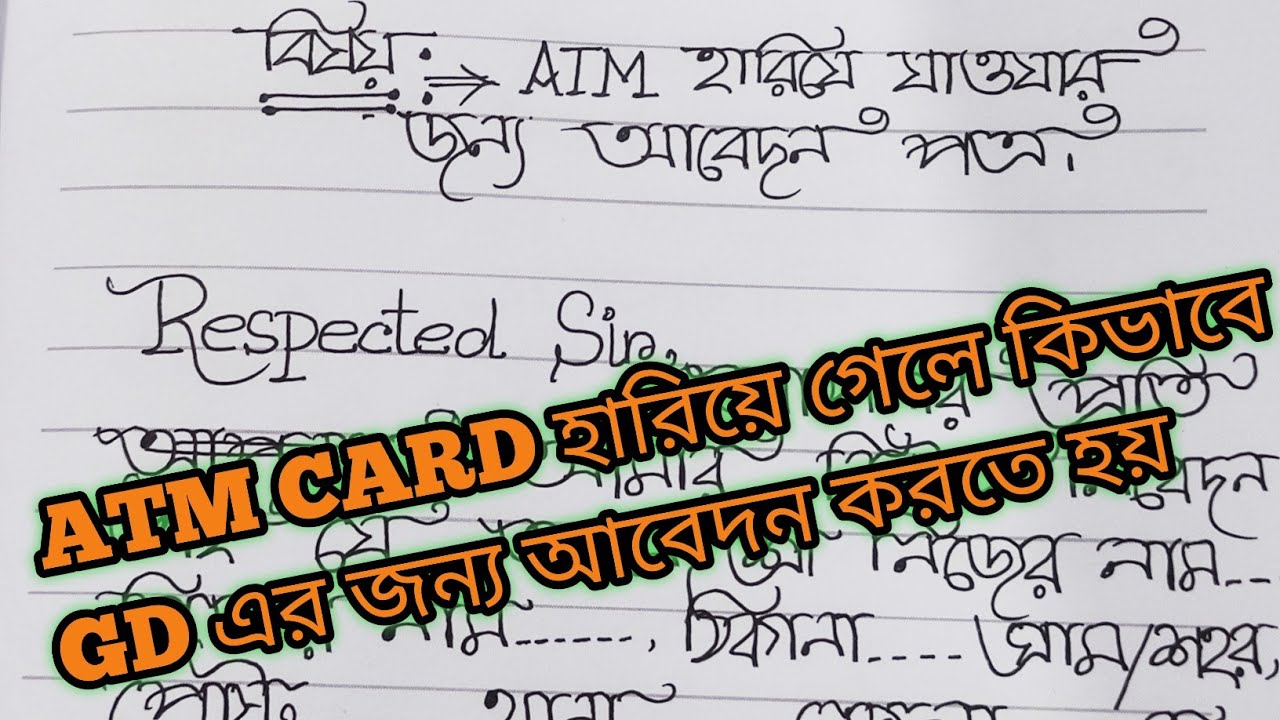 বিষয় :⇒ ATM হারিয়ে যাওয়ার
জন্য আবেদন পত্র।
Respected Sir,
ATM CARD হারিয়ে গেলে কিভাবে
GD এর জন্য আবেদন করতে হয়
প্রতি
আমার
যে নিজের নাম..
নাম......, ঠিকানা.... গ্রাম/শহর,
পোস্ট: থানা